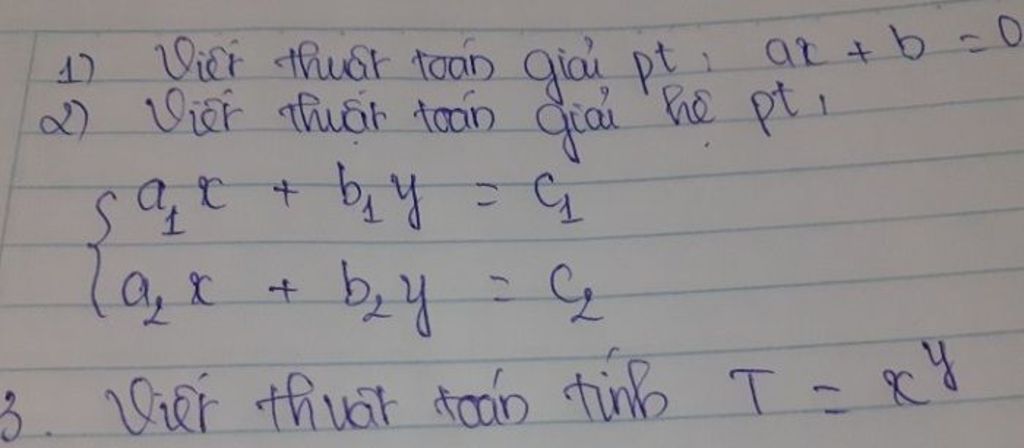 1) Viết thuật toán giải pt: ax + b = 0
2) Viết thuật toán giải hệ pt:
a₁x + b₁y = c₁
a₂x + b₂y = c₂
3. Viết thuật toán tính T = x^y